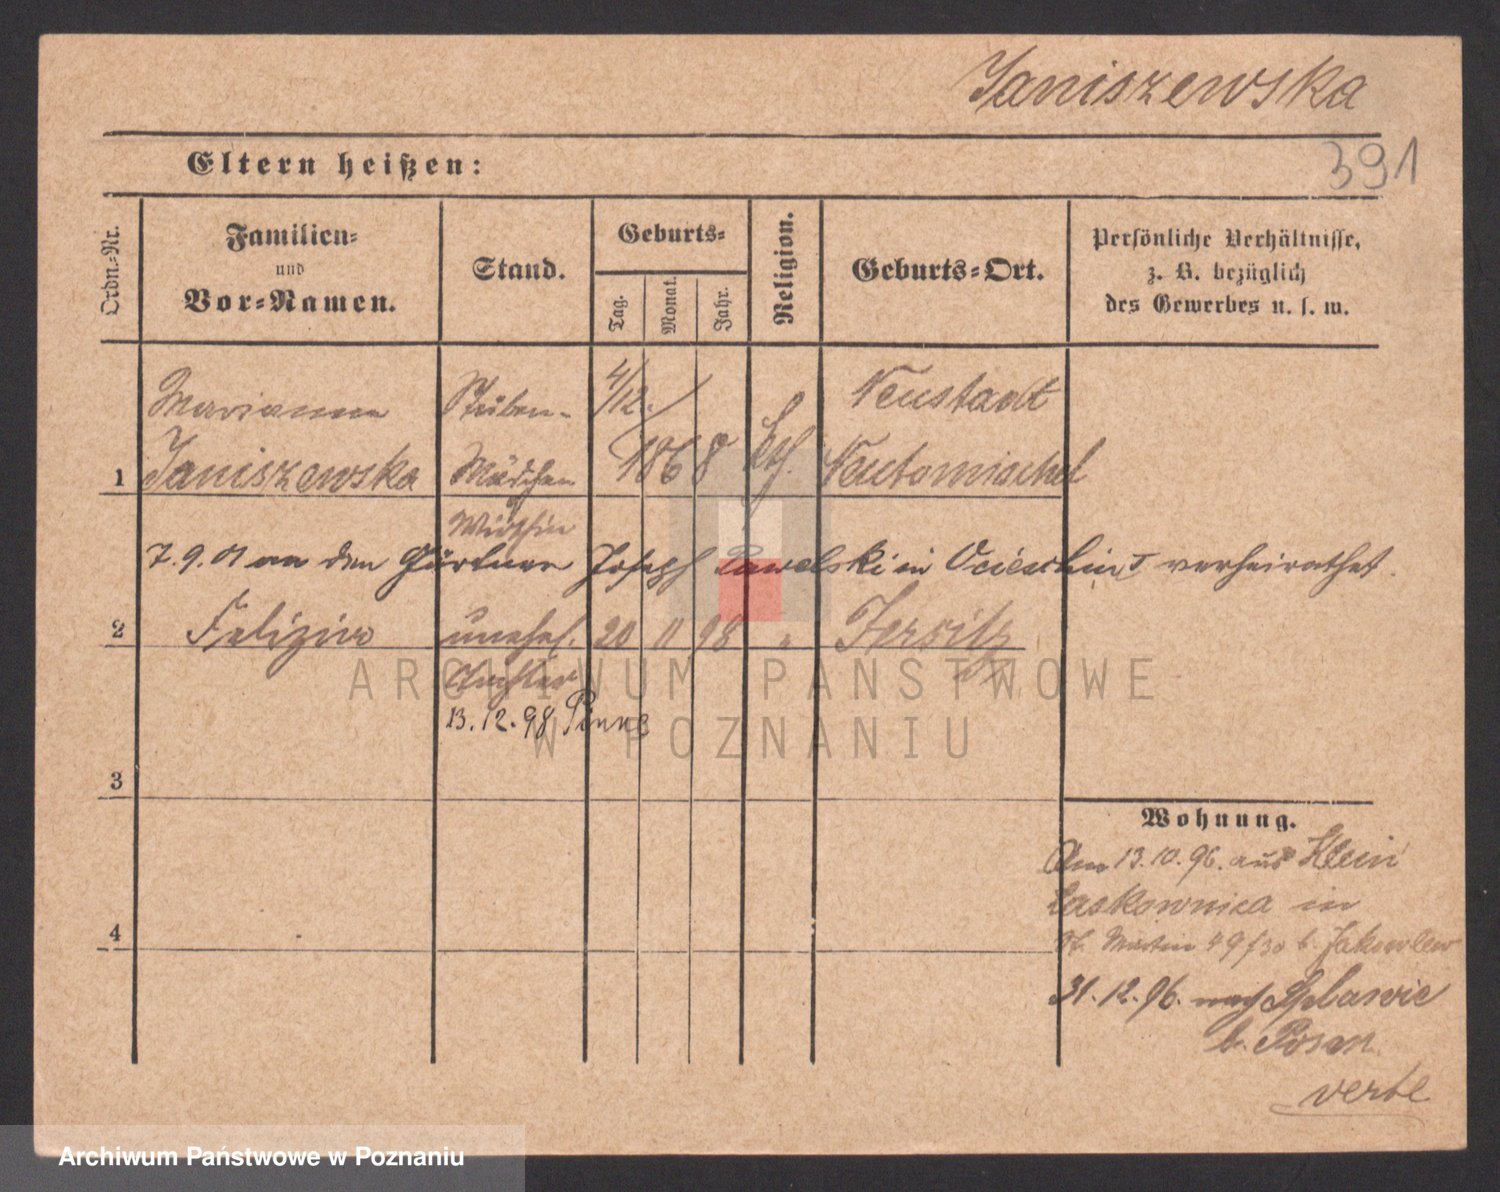 Janiszewska
391
Eltern heißen:
Ordn.-Nr.
Familien-
und
Vor-Namen.
Stand.
Geburts-
Tag.
Monat.
Jahr.
Religion.
Geburts-Ort.
Persönliche Verhältnisse,
z. B. bezüglich
des Gewerbes u. s. w.
Marianna Stuben- 4/12. Neustadt
1 Janiszewska Mädchen 1868 kth. Neutomischel
Wirthin
7.9.01 an den Gärtner Joseph Pawelski in verheirathet.
2 Felizia unehel. 20 11 98 " Jersitz
Tochter
13.12.98 Pinne
3
Wohnung.
Am 13.10.96. aus Klein
Laskownica in
4 St. Martin 49/30 b. Jakowlew
31.12.96. nach Splawie
b. Posen
verte
ARCHIWUM PAŃSTWOWE
W POZNANIU
Archiwum Państwowe w Poznaniu